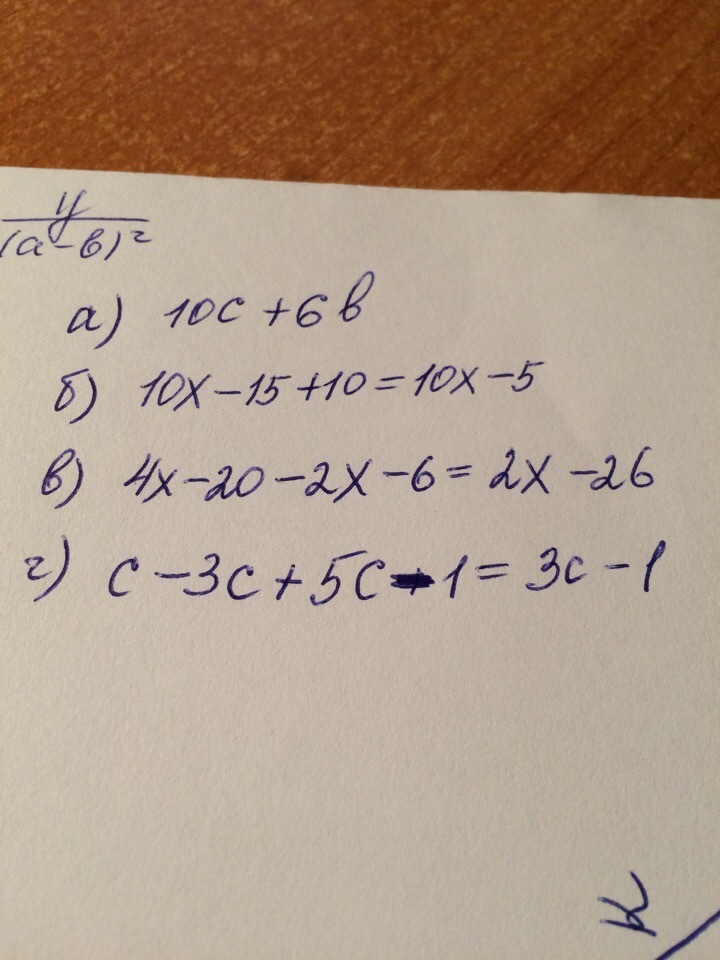 y
(a-b)²
а) 10c+6b
б) 10x-15+10=10x-5
в) 4x-20-2x-6=2x-26
г) c-3c+5c-1=3c-1